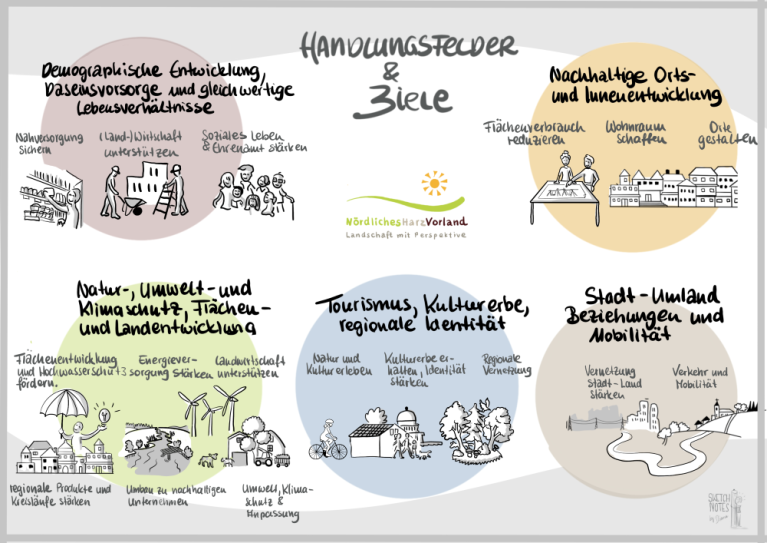 HANDLUNGSFELDER
&
Ziele
Demographische Entwicklung,
Daseinsvorsorge und gleichwertige
Lebensverhältnisse
Nahversorgung
sichern
(Land-)Wirtschaft
unterstützen
Soziales Leben
& Ehrenamt stärken
Nachhaltige Orts-
und Innenentwicklung
Flächenverbrauch
reduzieren
Wohnraum
schaffen
Orte
gestalten
NördlichesHarzVorland
Landschaft mit Perspektive
Natur-, Umwelt- und
Klimaschutz, Flächen-
und Landentwicklung
Flächenentwicklung
und Hochwasserschutz
fördern.
Energiever-
sorgung stärken
Landwirtschaft
unterstützen
regionale Produkte und
Kreisläufe stärken
Umbau zu nachhaltigen
Unternehmen
Umwelt, Klima-
schutz &
Anpassung
Tourismus, Kulturerbe,
regionale Identität
Natur und
Kultur erleben
Kulturerbe er-
halten, Identität
stärken
Regionale
Vernetzung
Stadt-Umland
Beziehungen und
Mobilität
Vernetzung
Stadt-Land
Stärken
Verkehr und
Mobilität
SKETCH
NOTES